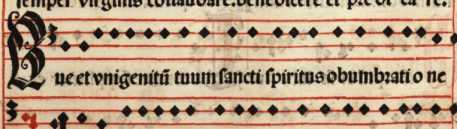 semper virginis collaudare. benedicere et predi ca re.
Que et vnigenitũ tuum sancti spiritus obumbrati o ne